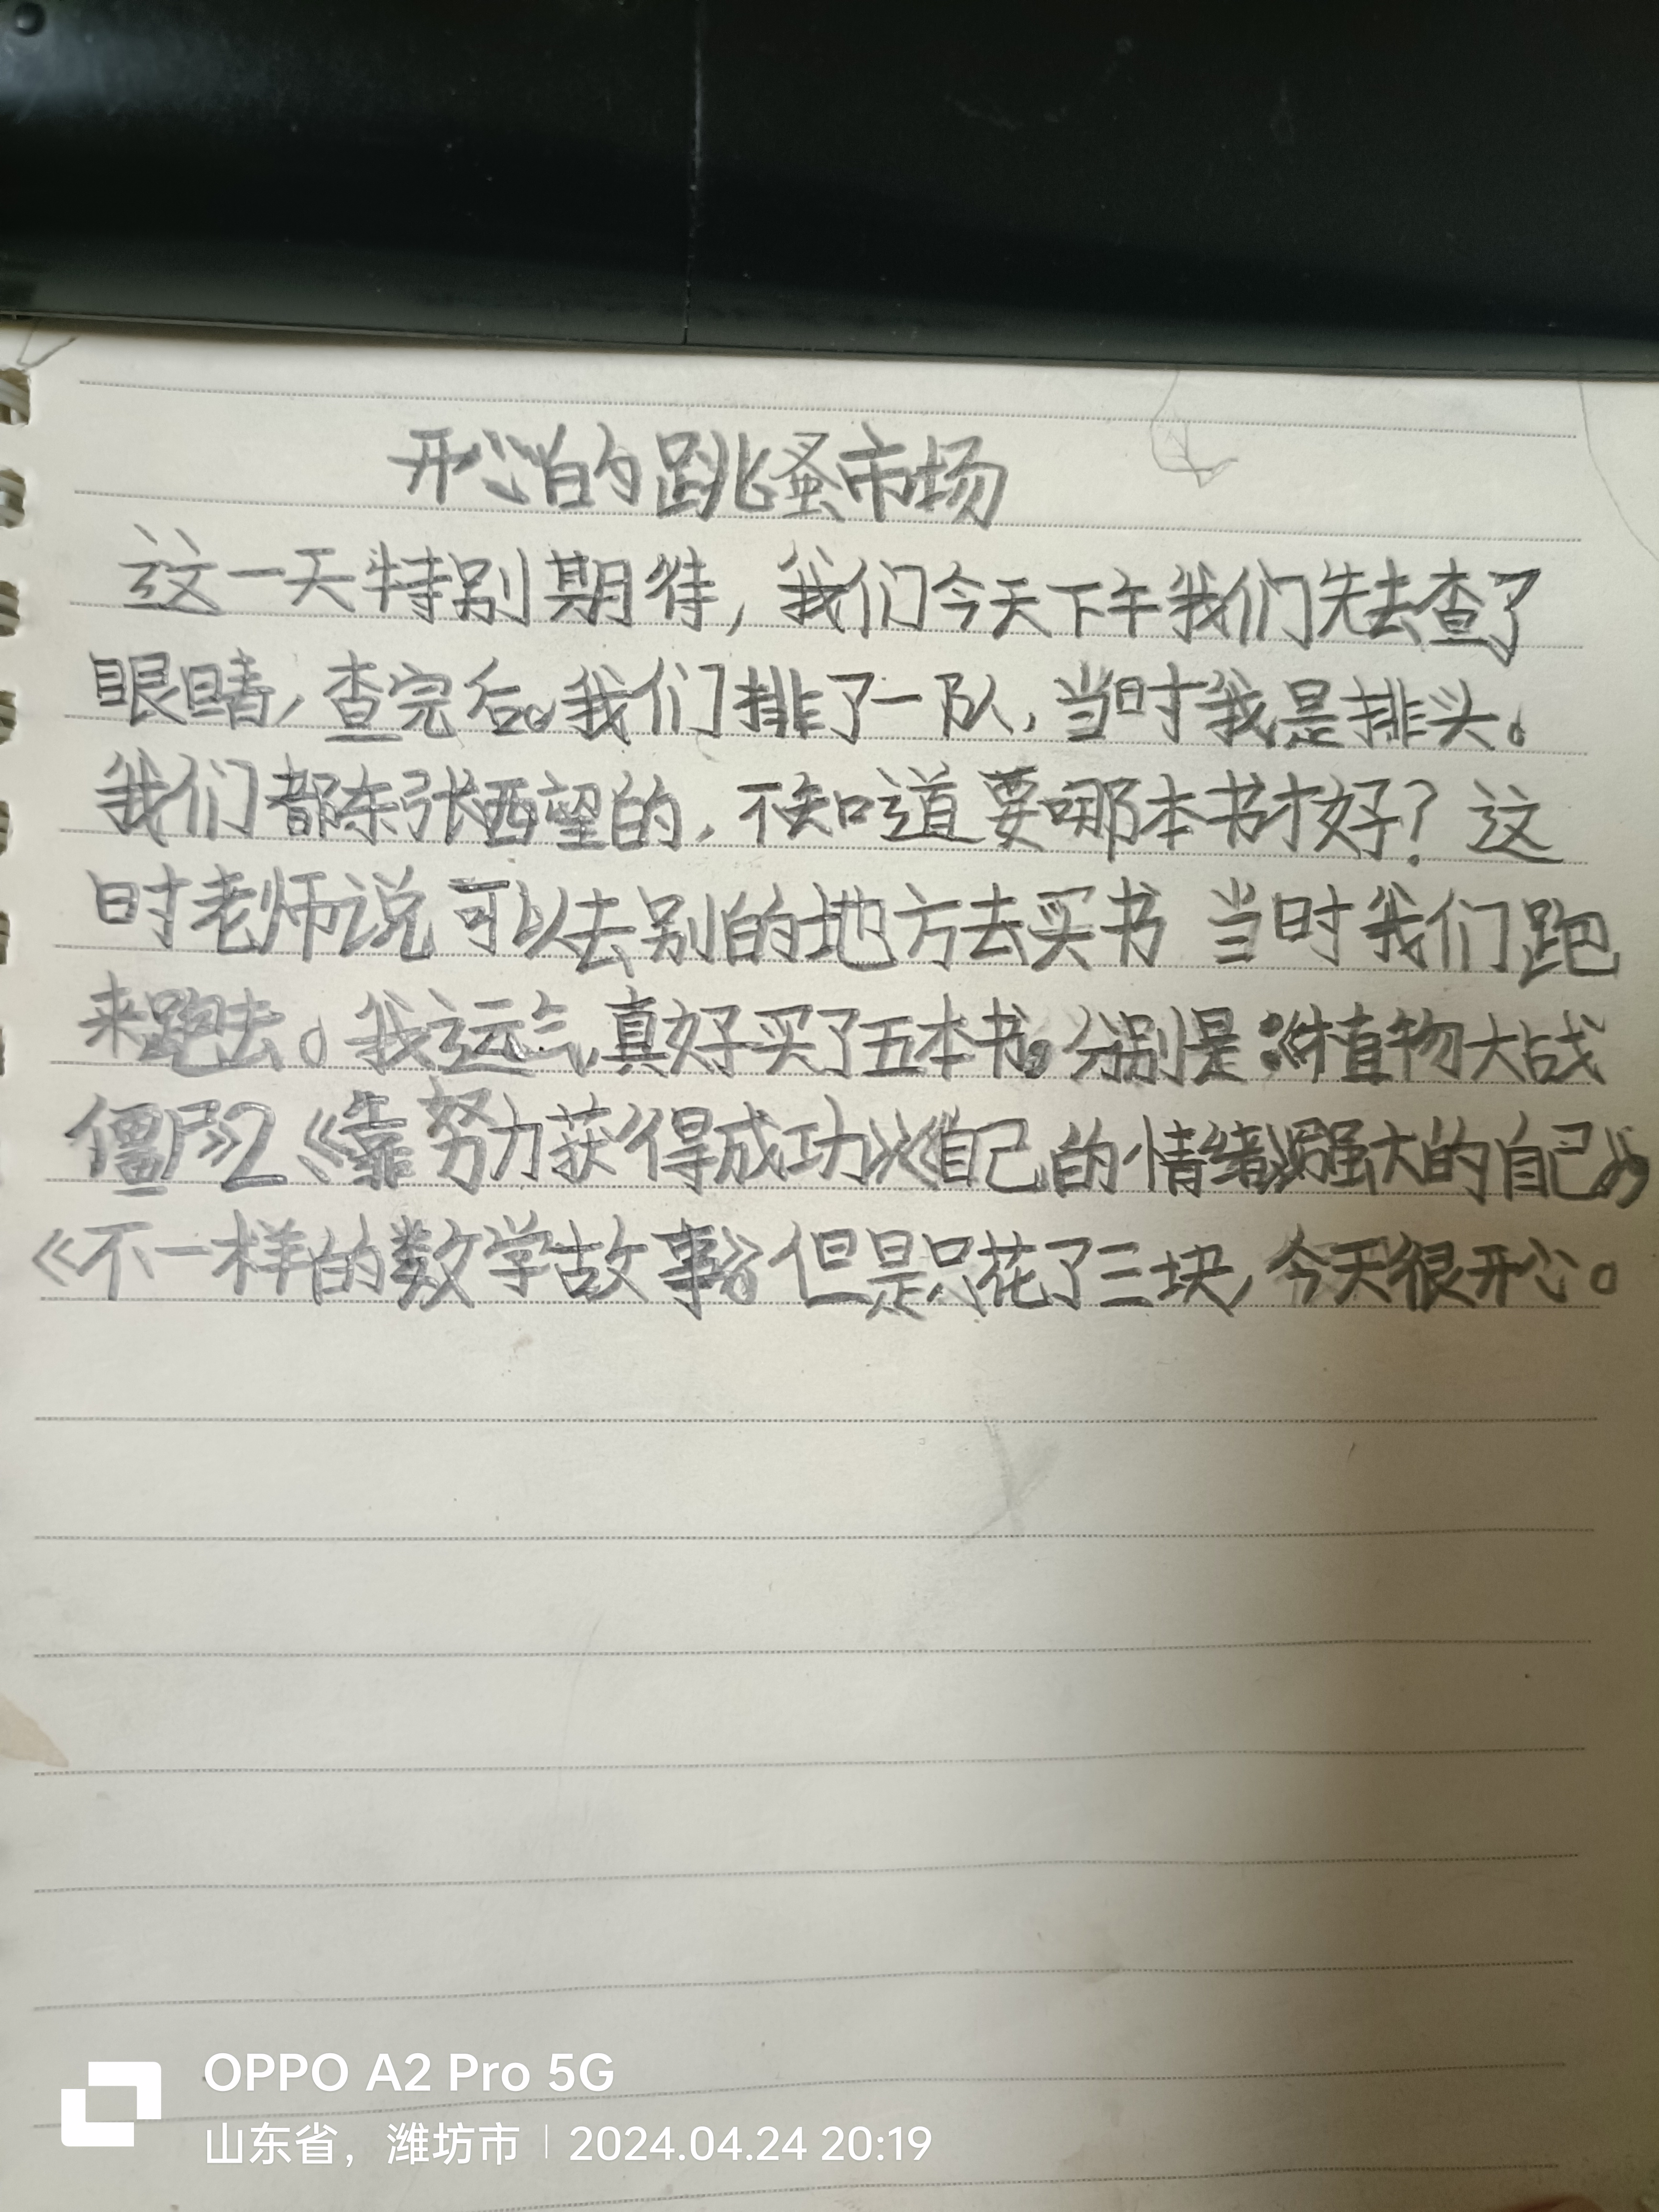 开心的跳蚤市场
这一天特别期待，我们今天下午我们先去查了
眼睛，查完后。我们排了一队，当时我是排头。
我们都东张西望的，不知道要哪本书才好？这
时老师说可以去别的地方去买书 当时我们跑
来跑去。我运气真好买了五本书。分别是：《植物大战
僵尸》2《靠努力获得成功》《自己的情绪》《强大的自己》
《不一样的数学故事》。但是只花了三块，今天很开心。
OPPO A2 Pro 5G
山东省，潍坊市 | 2024.04.24 20:19